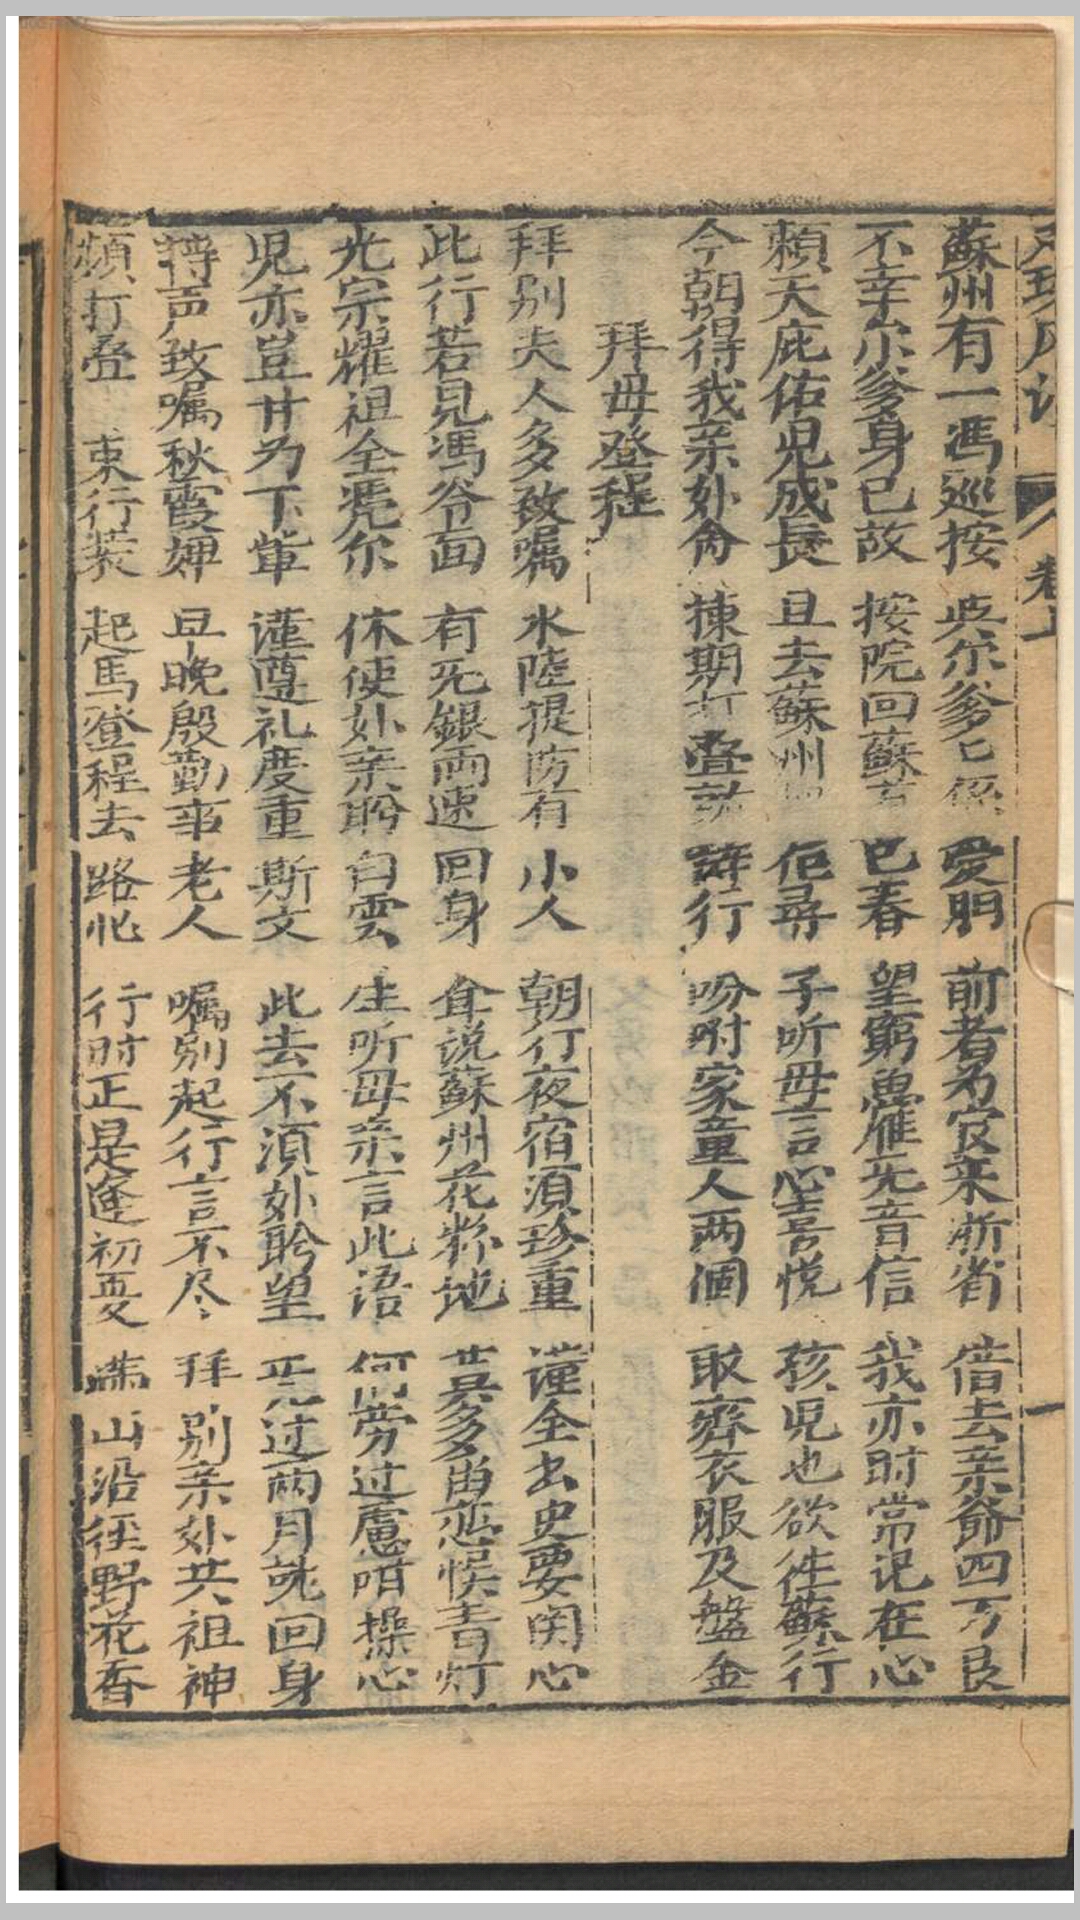 卷上
蘇州有一馮巡按 与尔爹𠆤係 愛朋 前者为官来浙省 借去亲爺四万艮
不幸尔爹身已故 按院回蘇 已春 望窮魚雁无音信 我亦时常记在心
賴天庇佑児成長 且去蘇州 佢尋 子听母言心喜悦 孩児也欲徃蘇行
今朝得我亲外肏 揀期打叠 許行 吩咐家童人两個 取齊衣服及盤金
拜母登程
拜别夫人多致嘱 水陸提防有小人 朝行夜宿須珍重 谨全出吏要関心
此行若見馮爷面 有无銀両速回身 耸说蘇州花粉地 莫多留恋悞青灯
光宗耀祖全凴尔 休使外亲盻白雲 生听母亲言此语 何劳过慮咁操心
児亦豈甘为下輩 谨遵礼度重斯文 此去不須外盻望 无过两月就回身
轉声致嘱秋霞婢 早晚殷勤事老人 嘱别起行言不尽 拜别亲外共祖神
頻打叠 束行装 起馬登程去路忙 行时正是逢初夏 满山沿徑野花香